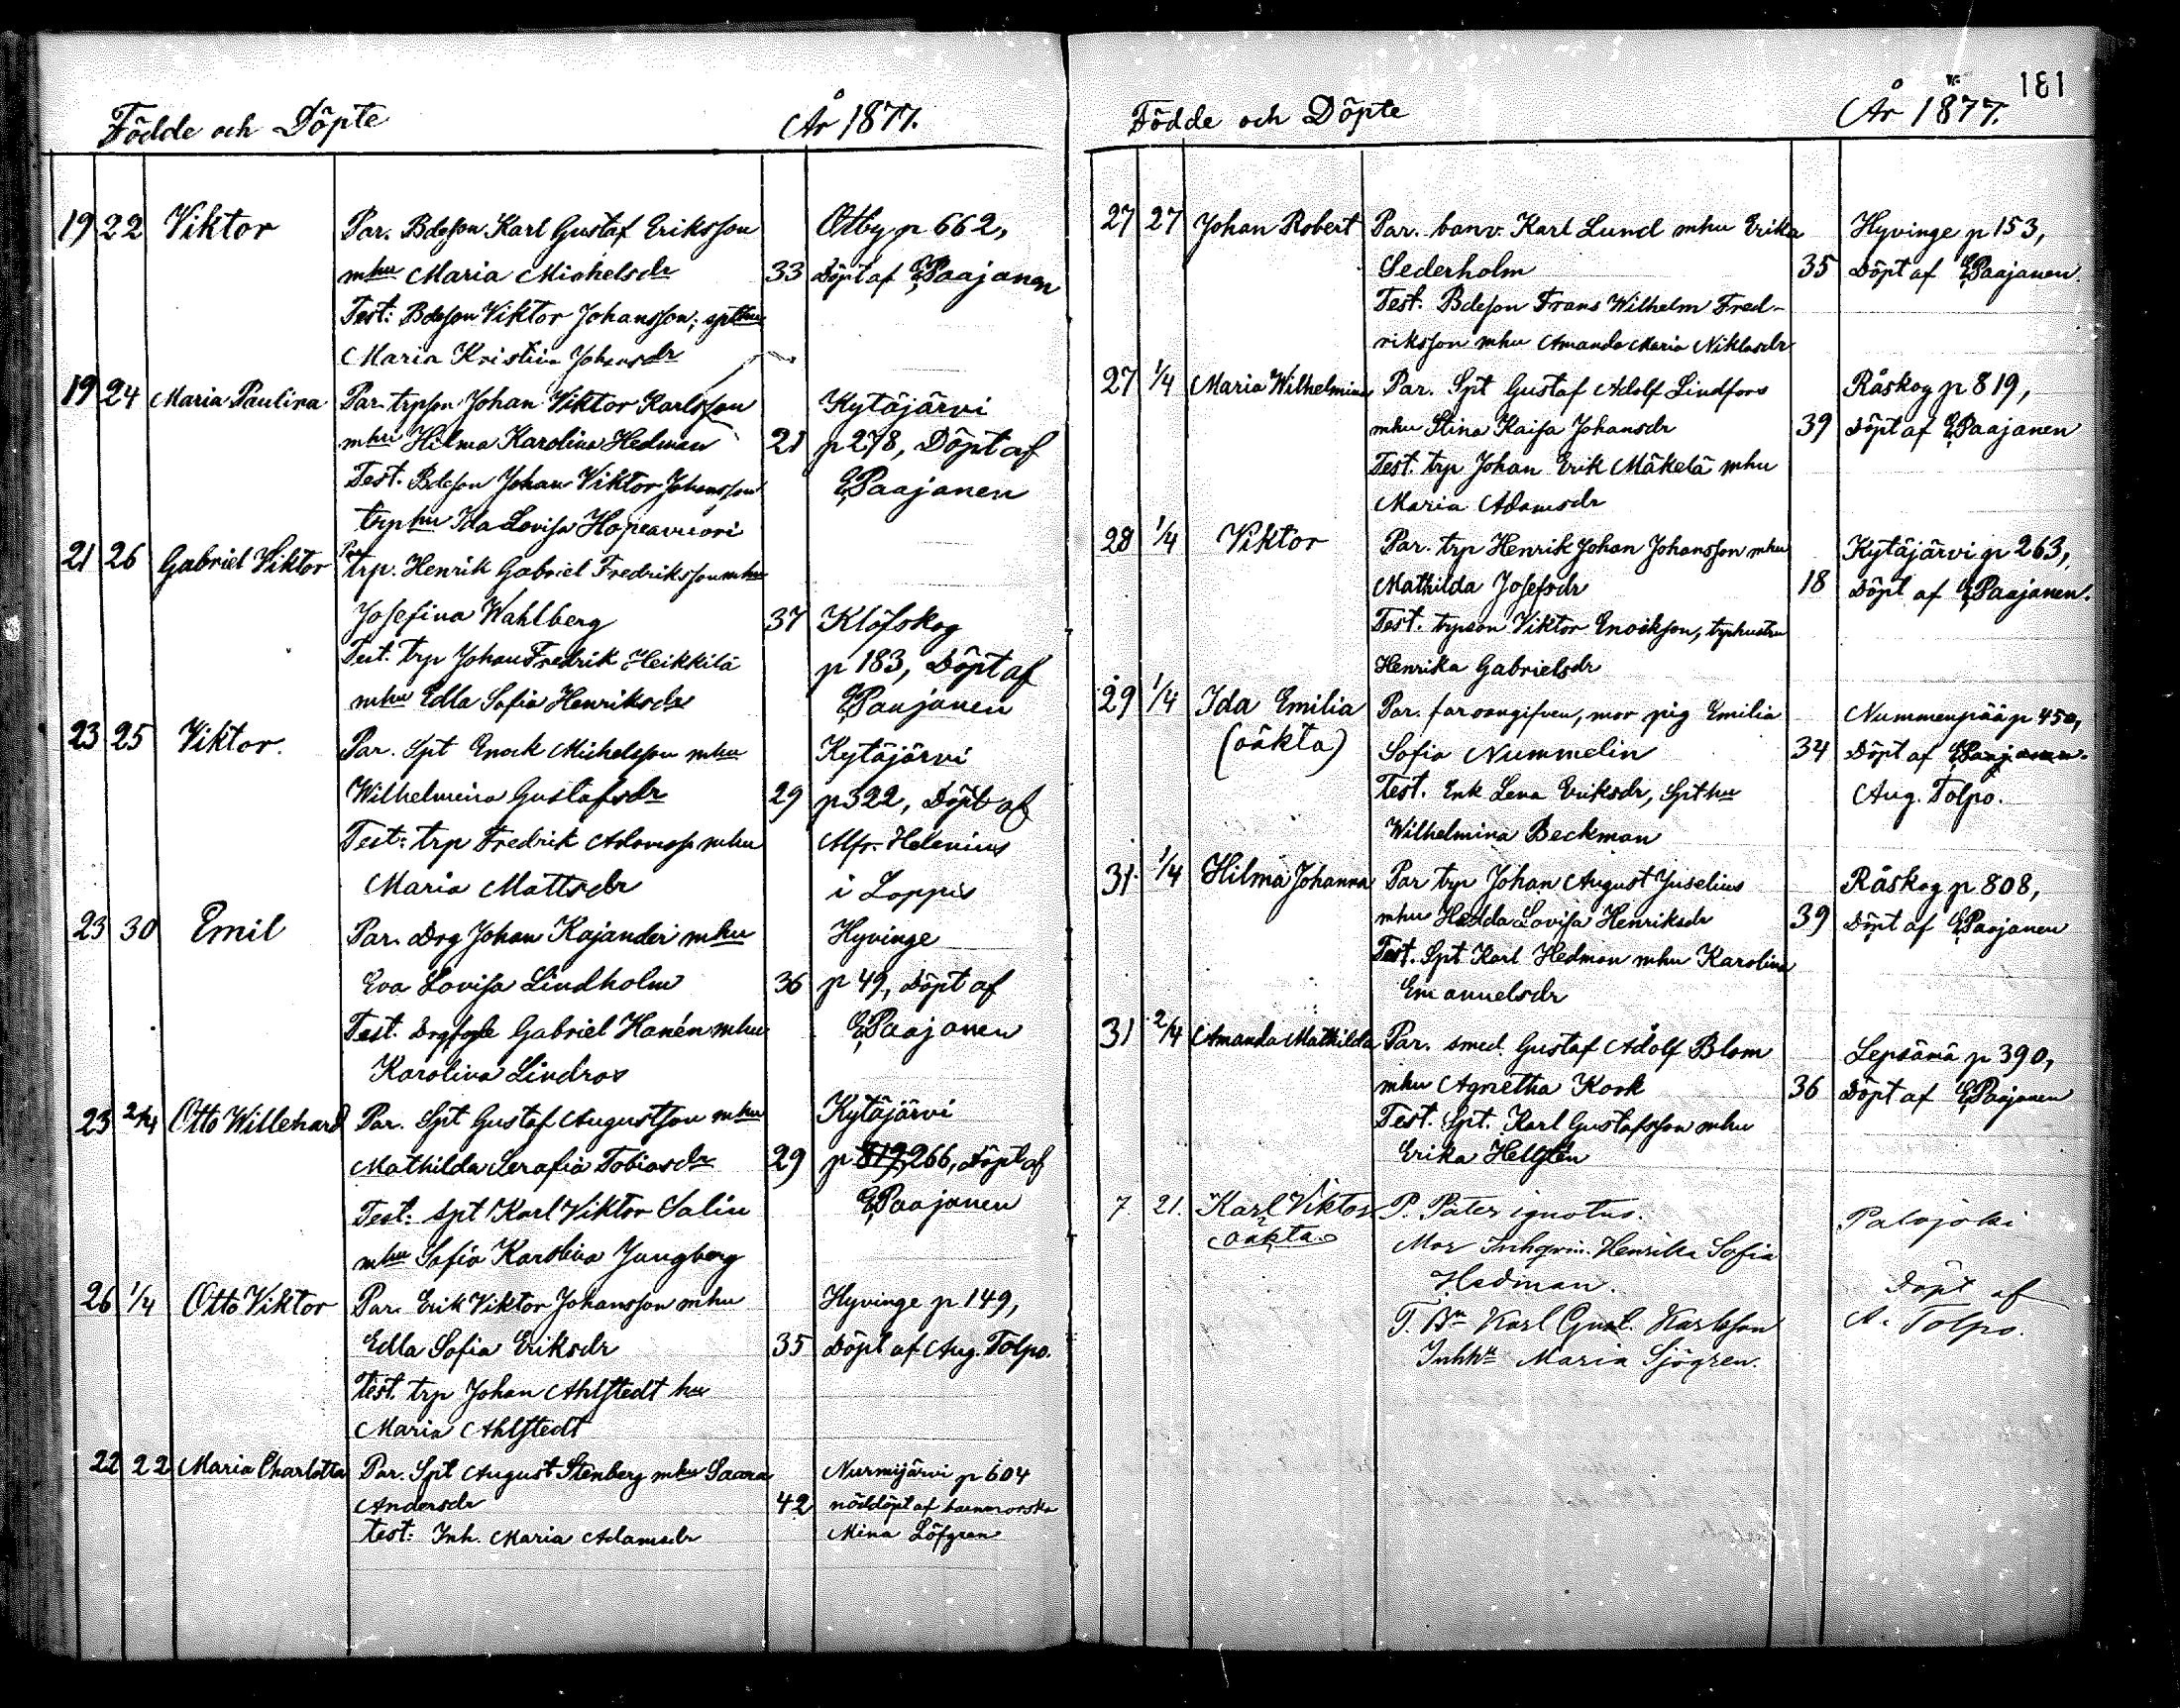 Födde och Döpte År 1877.
19 22 Viktor Par. Bdeson Karl Gustaf Eriksson Otby p 662,
mhu Maria Michelsdr 33 Döpt af E. Paajanen
Test: Bdeson Viktor Johansson; spthu
Maria Kristina Johansdr
19 24 Maria Paulina Par. trpson Johan Viktor Karlsson Kytäjärvi
mhu Hilma Karolina Hedman 21 p 278, Döpt af
Test. Bdeson Johan Viktor Johansson E. Paajanen
trphu Ida Lovisa Hopeavuori
21 26 Gabriel Viktor Par trp. Henrik Gabriel Fredriksson mhu
Josefina Wahlberg 37 Klöfskog
Test. trp Johan Fredrik Heikkilä p 183, Döpt af
mhu Edla Sofia Henriksdr E. Paajanen
23 25 Viktor. Par. Spt Enock Michelsson mhu Kytäjärvi
Wilhelmina Gustafsdr 29 p 322, Döpt af
Test: trp Fredrik Adamsson mhu Mfr. Helenius
Maria Mattsdr i Loppis
23 30 Emil Par. Drg Johan Kajander mhu Hyvinge
Eva Lovisa Lindholm 36 p 49, Döpt af
Test. Gabriel Hanén mhu E. Paajanen
Karolina Lindros
23 2/4 Otto Willehard Par. Spt Gustaf Augustsson mhu Kytäjärvi
Mathilda Serafia Tobiasdr 29 p 266, Döpt af
Test: spt Karl Viktor Salin E. Paajanen
mhu Sofia Karolina Jungberg
26 1/4 Otto Viktor Par. Erik Viktor Johansson mhu Hyvinge p 149,
Edla Sofia Eriksdr 35 Döpt af Aug. Tolpo.
Test. trp Johan Ahlstedt hu
Maria Ahlstedt
22 22 Maria Charlotta Par. Spt August Stenberg mhu Saara Nurmijärvi p 604
Andersdr 42 nöddöpt af barnmorska
test: Inh. Maria Adamsdr Mina Löfgren
181
Födde och Döpte År 1877.
27 27 Johan Robert Par. banv. Karl Lund mhu Erika Hyvinge p 153,
Sederholm 35 Döpt af E. Paajanen.
Test. Bdeson Frans Wilhelm Fred-
riksson mhu Amanda Maria Niklasdr
27 1/4 Maria Wilhelmina Par. Spt Gustaf Adolf Lindfors Råskog p 819,
mhu Stina Kaisa Johansdr 39 Döpt af E. Paajanen
Test. trp Johan Erik Mäkelä mhu
Maria Adamsdr
28 1/4 Viktor Par. trp Henrik Johan Johansson mhu Kytäjärvi p 263,
Mathilda Josefsdr 18 Döpt af E. Paajanen.
Test. trpson Viktor Enockson, trphustru
Henrika Gabrielsdr
29 1/4 Ida Emilia Par. far oangifven, mor pig Emilia Nummenpää p 450,
(oäkta) Sofia Nummelin 34 Döpt af E. Paajanen.
Test. Enk Lena Eriksdr, Spt hu Aug. Tolpo.
Wilhelmina Beckman
31 1/4 Hilma Johanna Par trp Johan August Juselius Råskog p 808,
mhu Hedda Lovisa Henriksdr 39 Döpt af E. Paajanen
Test. Spt Karl Hedman mhu Karolina
Emanuelsdr
31 2/4 Amanda Mathilda Par. smed. Gustaf Adolf Blom Lepsämä p 390,
mhu Agnetha Kook 36 Döpt af E. Paajanen
Test. Spt. Karl Gustafsson mhu
Erika Hellstén
7 21. Karl Viktor P. Pater ignotus. Palojoki
oäkta Mor Inhqvin. Henrika Sofia
Hedman. Döpt af
T. Karl Gust. Karlsson A. Tolpo.
Inhhu Maria Sjögren.